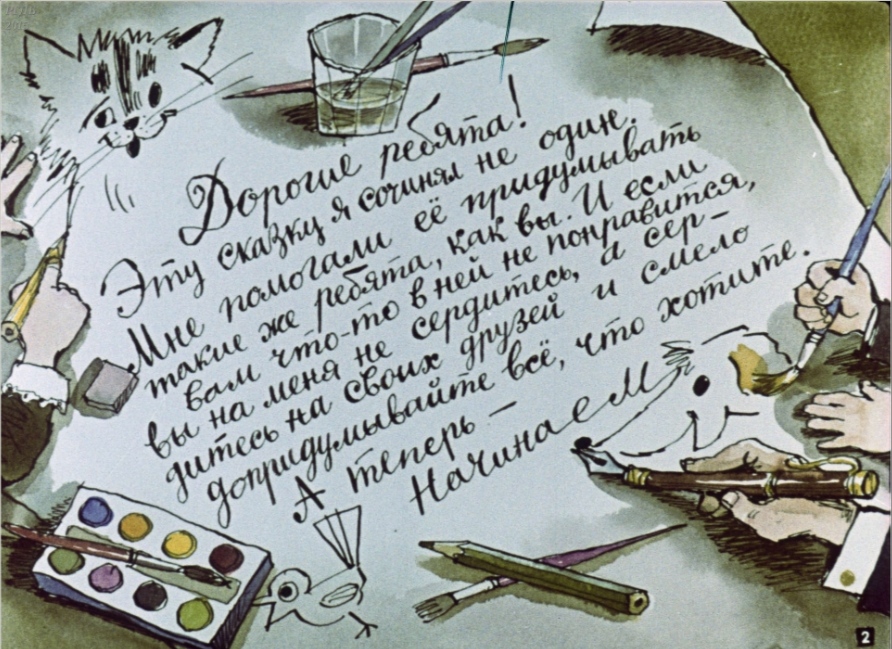 Дорогие ребята!
Эту сказку я сочинял не один.
Мне помогали её придумывать
такие же ребята, как вы. И если
вам что-то в ней не понравится,
вы на меня не сердитесь, а сер-
дитесь на своих друзей и смело
допридумывайте всё, что хотите.
А теперь —
Начинаем
2